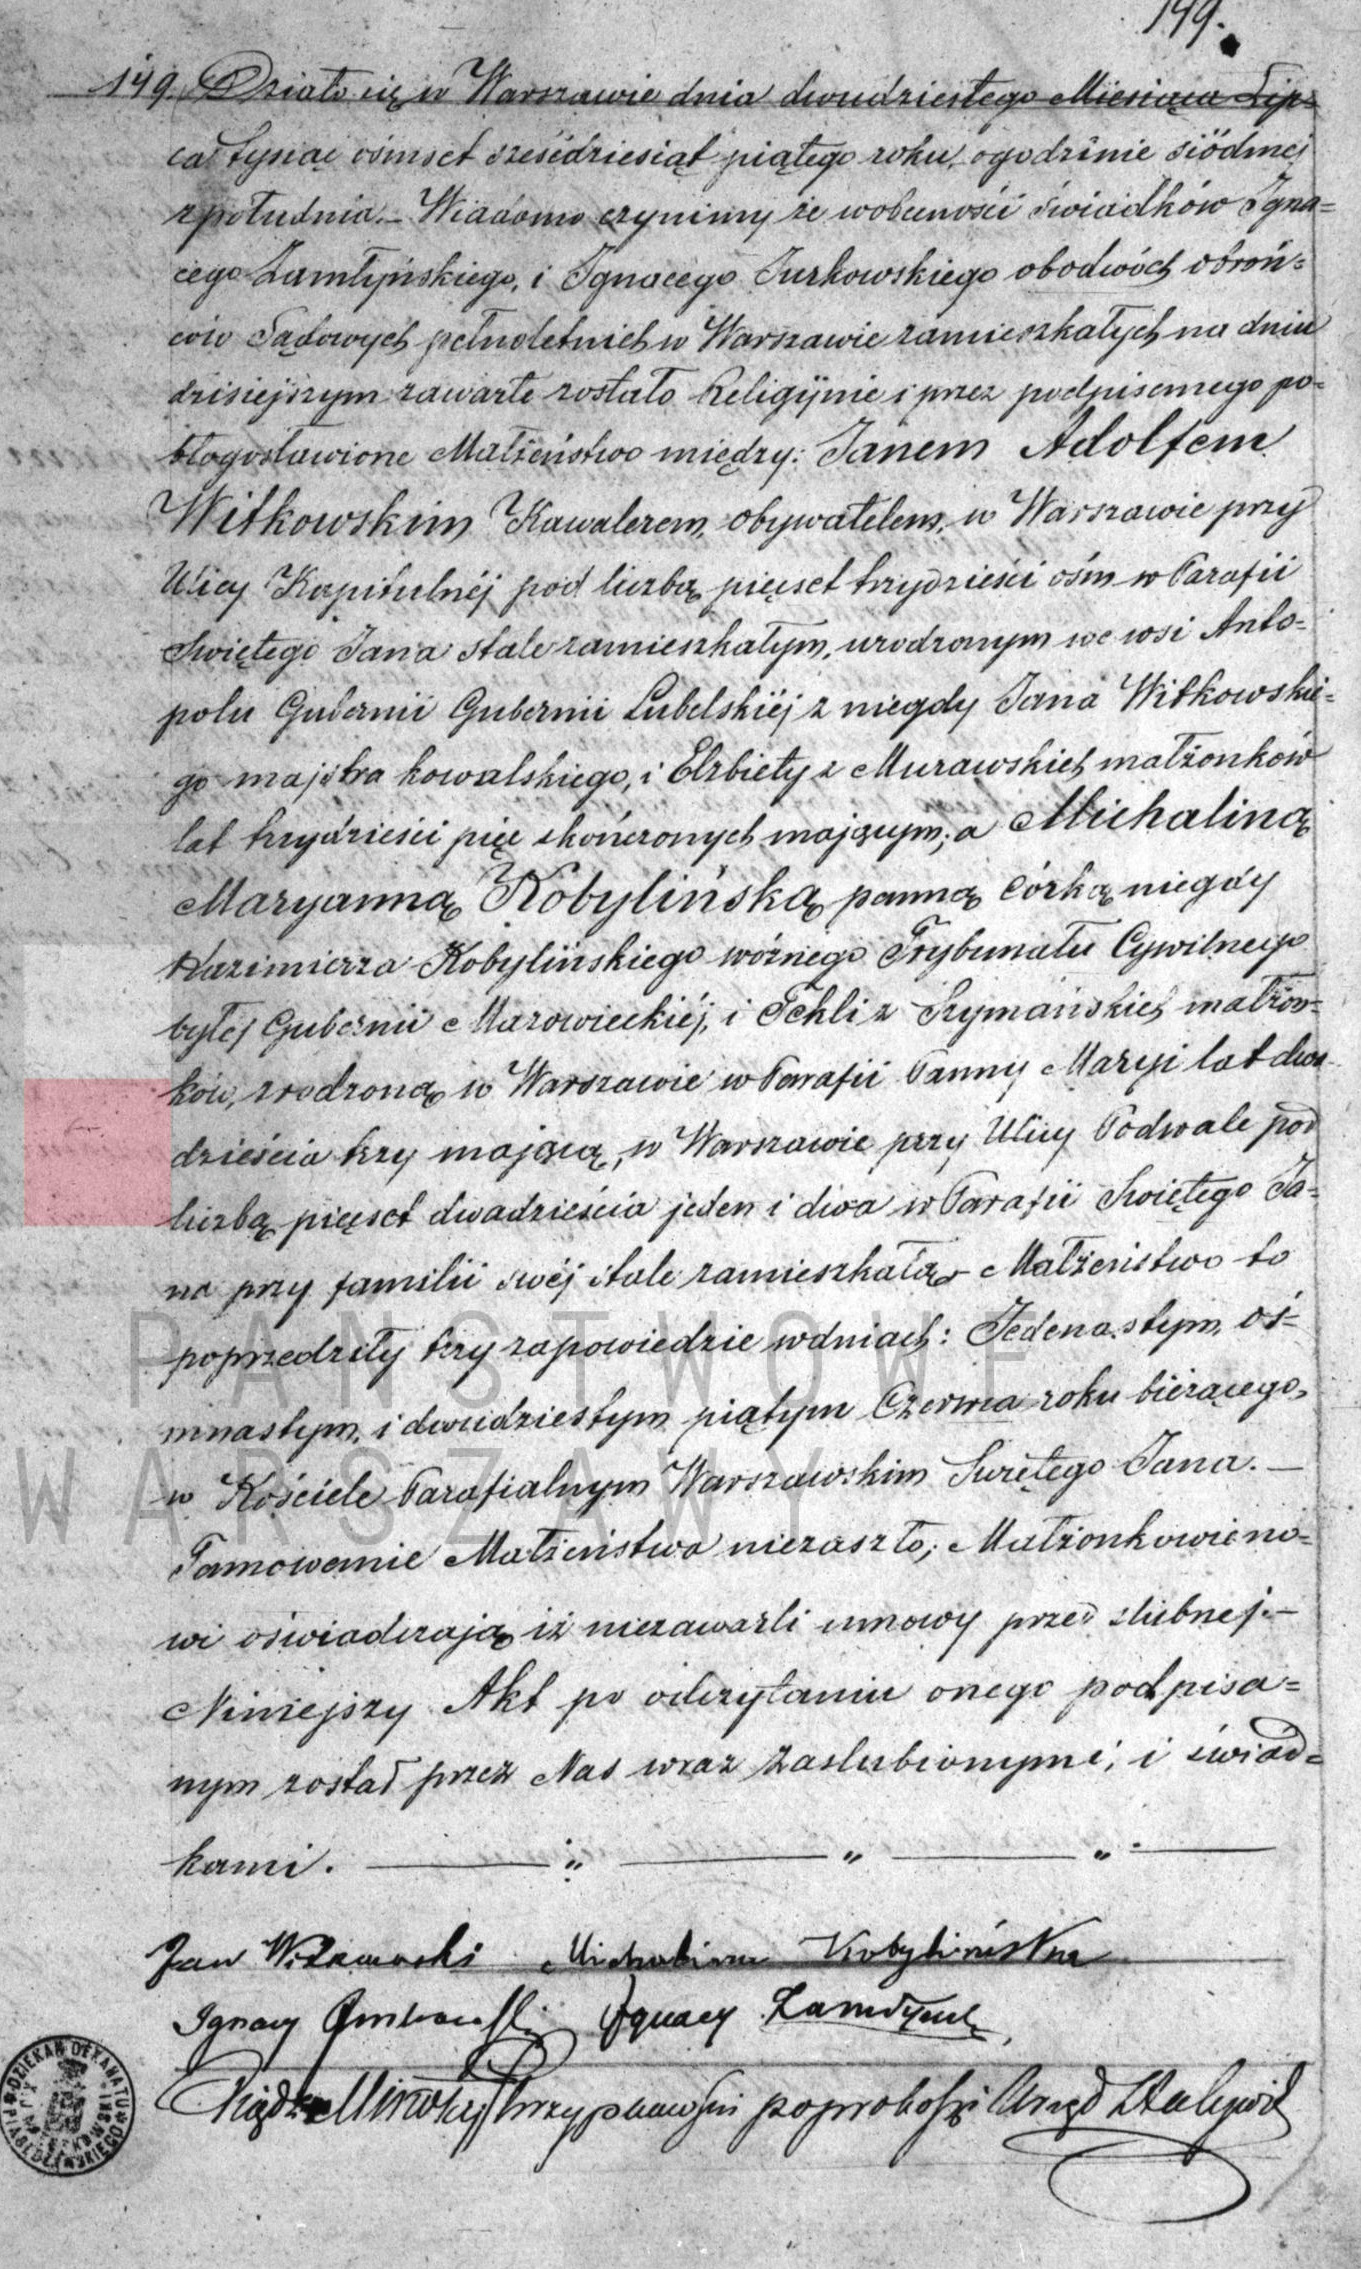 149.
149. Działo się w Warszawie dnia dwudziestego Miesiąca Lip-
ca tysiąc ośmset sześćdziesiąt piątego roku, o godzinie siódmej
z południa. – Wiadomo czynimy że w obecności świadków Igna=
cego Zamłyńskiego, i Ignacego Jurkowskiego obodwóch obroń=
ców Sądowych pełnoletnich w Warszawie zamieszkałych na dniu
dzisiejszym zawarte zostało Religijnie i przez podpisanego po=
błogosławione Małżeństwo między: Janem Adolfem
Witkowskim Kawalerem, obywatelem, w Warszawie przy
Ulicy Kapitulnéj pod liczbą pięćset trzydzieści ośm w Parafii
Swiętego Jana stale zamieszkałym, urodzonym we wsi Anto=
polu Gubernii Gubernii Lubelskiéj z niegdy Jana Witkowskie=
go majstra kowalskiego, i Elżbiety z Murawskich małżonków
lat trzydzieści pięć skończonych mającym; a Michaliną
Maryanną Kobylińską panną córką niegdy
Kazimierza Kobylińskiego woźnego Trybunału Cywilnego
byłej Gubernii Mazowieckiéj, i Tekli z Szymańskich małżon=
ków, zrodzoną w Warszawie w Parafii Panny Maryi lat dwa-
dzieścia trzy mającą, w Warszawie przy Ulicy Podwale pod
liczbą pięćset dwadzieścia jeden i dwa w Parafii Swiętego Ja=
na przy familii swéj stale zamieszkałą – Małżeństwo to
poprzedziły trzy zapowiedzie w dniach: Jedenastym, oś=
mnastym, i dwudziestym piątym Czerwca roku bieżącego,
w Kościele Parafialnym Warszawskim Swiętego Jana. –
Tamowanie Małżeństwa niezaszło; Małżonkowie no=
wi oświadczają iż niezawarli umowy przed ślubnej. –
Niniejszy Akt po odczytaniu onego podpisa=
nym został przez Nas wraz Zaslubionymi, i świad=
kami. — „ — „ — „ —
Jan Witkowski Michalina Kobylińska
Ignacy Jurkowski Ignacy Zamłyński
Ksiądz Mikołaj
PAŃSTWOWE
WARSZAWY